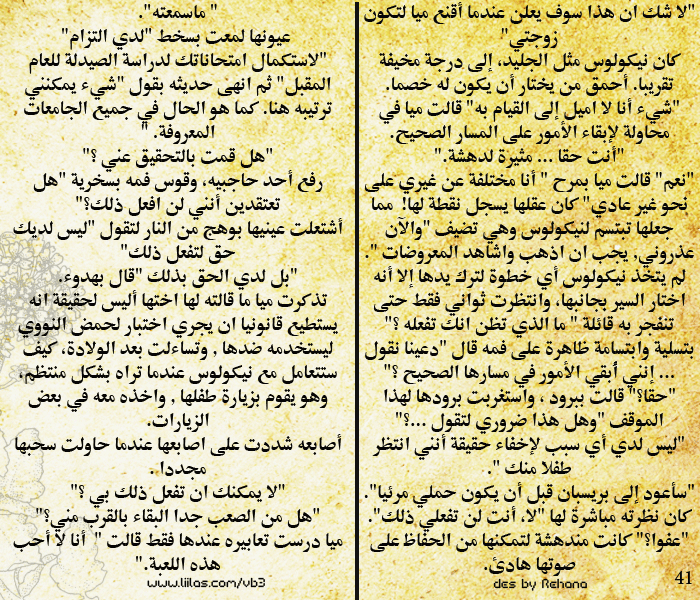 "لا شك ان هذا سوف يعلن عندما أقنع ميا لتكون
زوجتي"
كان نيكولوس مثل الجليد، إلى درجة مخيفة
تقريبا. أحمق من يختار أن يكون له خصما.
"شيء أنا لا اميل إلى القيام به" قالت ميا في
محاولة لإبقاء الأمور على المسار الصحيح.
"أنت حقا ... مثيرة لدهشة."
"نعم" قالت ميا بمرح " أنا مختلفة عن غيري على
نحو غير عادي" كان عقلها يسجل نقطة لها! مما
جعلها تبتسم لنيكولوس وهي تضيف "والآن
عذروني, يجب ان اذهب واشاهد المعروضات ".
لم يتخذ نيكولوس أي خطوة لترك يدها إلا أنه
اختار السير بجانبها، وانتظرت ثواني فقط حتى
تنفجر به قائلة " ما الذي تظن انك تفعله ؟"
بتسلية وابتسامة ظاهرة على فمه قال "دعينا نقول
... إنني أبقي الأمور في مسارها الصحيح ؟"
"حقا؟" قالت ببرود ، واستغربت برودها لهذا
الموقف "وهل هذا ضروري لتقول ...؟"
"ليس لدي أي سبب لإخفاء حقيقة أنني انتظر
طفلا منك ".
"سأعود إلى بريسبان قبل أن يكون حملي مرئيا".
كان نظرته مباشرة لها "لا، أنت لن تفعلي ذلك".
"عفوا؟" كانت مندهشة لتمكنها من الحفاظ على
صوتها هادئ.
41
des by Rehana
" ماسمعته".
عيونها لمعت بسخط "لدي التزام"
"لاستكمال امتحاناتك لدراسة الصيدلة للعام
المقبل" ثم انهى حديثه بقول "شيء يمكنني
ترتيبه هنا. كما هو الحال في جميع الجامعات
المعروفة. "
"هل قمت بالتحقيق عني ؟"
رفع أحد حاجبيه، وقوس فمه بسخرية "هل
تعتقدين أنني لن افعل ذلك؟"
أشتعلت عينيها بوهج من النار لتقول "ليس لديك
حق لتفعل ذلك"
"بل لدي الحق بذلك "قال بهدوء.
تذكرت ميا ما قالته لها اختها أليس لحقيقة انه
يستطيع قانونيا ان يجري اختبار لحمض النووي
ليستخدمه ضدها , وتساءلت بعد الولادة، كيف
ستتعامل مع نيكولوس عندما تراه بشكل منتظم،
وهو يقوم بزيارة طفلها , واخذه معه في بعض
الزيارات.
أصابعه شددت على اصابعها عندما حاولت سحبها
مجددا.
"لا يمكنك ان تفعل ذلك بي ؟"
"هل من الصعب جدا البقاء بالقرب مني؟"
ميا درست تعابيره عندها فقط قالت " أنا لا أحب
هذه اللعبة."
www.liilas.com/vb3